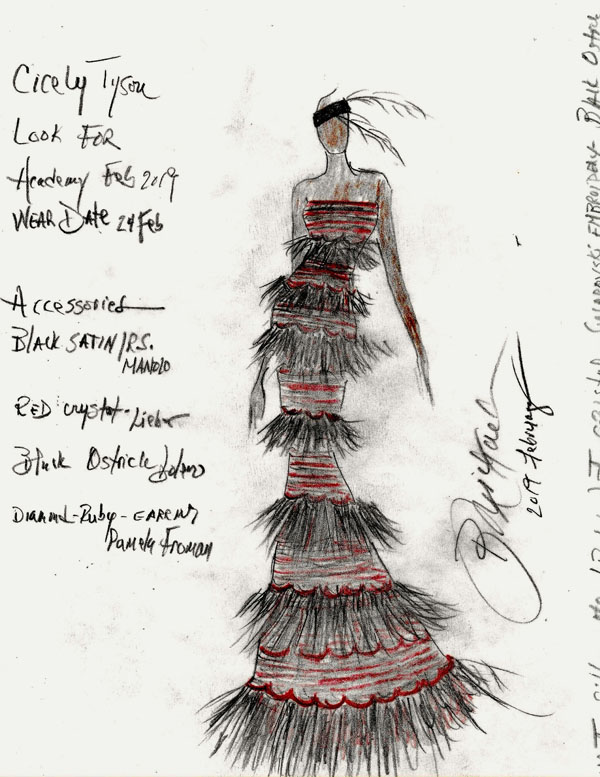 Cicely Tyson
Look For
Academy Feb 2019
Wear Date 24 Feb
Accessories
Black Satin/R.S.
Manolo
Red crystal - Lieber
Black Ostrich
Diamond-Ruby-
Pamela Froman
B Michael
2019 February
Swarovski Embroidery Black